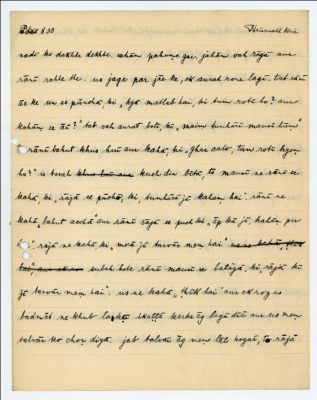 8.30
rado ko dekhte dekhte. vahām pahunc gae, jahām vah rājā aur
rānī rahte the. us jage par jāe ke, ek aurat rone lagī. tab rānī
āe ke us se pūchā, ki "kyā matlab hai, ki tum rotī ho? aur
kahām se āī?" tab vah aurat bolī, ki "maim tumhārī mausī hūm"
rānī bahut khus huī aur kahā, ki "ghar calo, tum rotī kyom
ho?" is tarah kuch din bītā, to mausī ne rānī se
kahā, ki, rājā se pūcho, ki, tumhārā jī kahām hai. rānī ne
kahā "bahut acchā" aur rānī rājā se puch ki "āp kā jī, kahām par
rājā ne kahā ki, merā jī tarvār mem hai"
subah hote rānī mausī se batāyā, ki, rājā kā
jī tarvār mem hai. us ne kahā "thīk hai" aur ek roj us
badmās ne khub lakṛī ikaṭṭhā karke āg lagā dīā aur us mem
talvār ko choṛ diyā. jab talvār āg mem lāl hogaā, to rājā